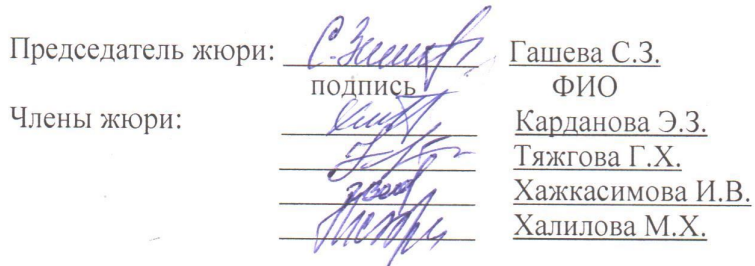 Председатель жюри: Гашева С.З.
подпись ФИО
Члены жюри: Карданова Э.З.
Тяжгова Г.Х.
Хажкасимова И.В.
Халилова М.Х.